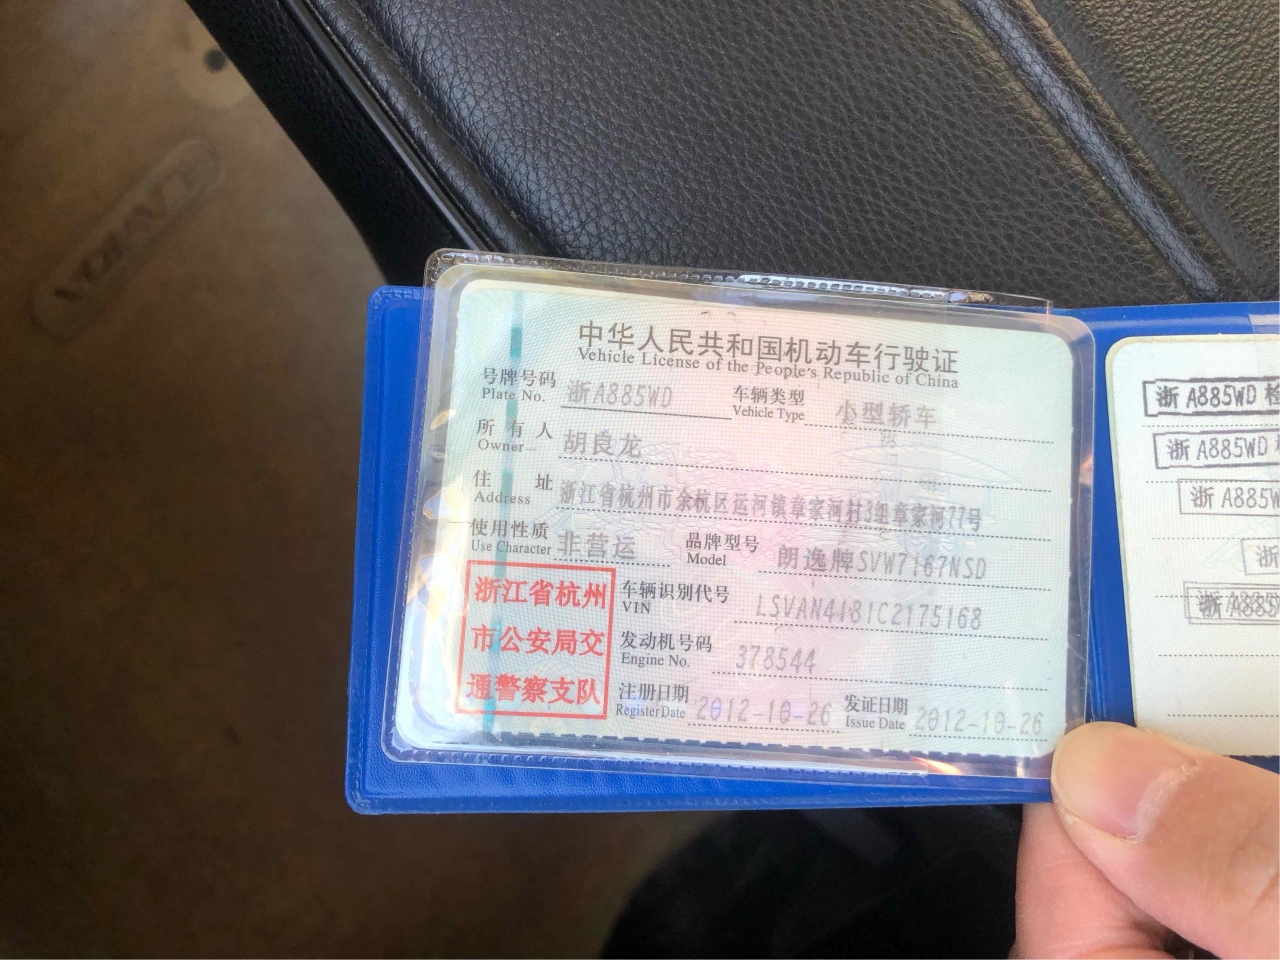 中华人民共和国机动车行驶证
Vehicle License of the People's Republic of China
号牌号码 浙A885WD 车辆类型 小型轿车
Plate No. Vehicle Type
所有人 胡良龙
Owner
住址 浙江省杭州市余杭区运河镇章家河村3组章家河77号
Address
使用性质 非营运 品牌型号 朗逸牌SVW7167NSD
Use Character Model
浙江省杭州
市公安局交
通警察支队
车辆识别代号 LSVAN4181C2175168
VIN
发动机号码 378544
Engine No.
注册日期 2012-10-26 发证日期 2012-10-26
Register Date Issue Date
浙A885WD 检
浙A885WD
浙A885W
浙
浙A885